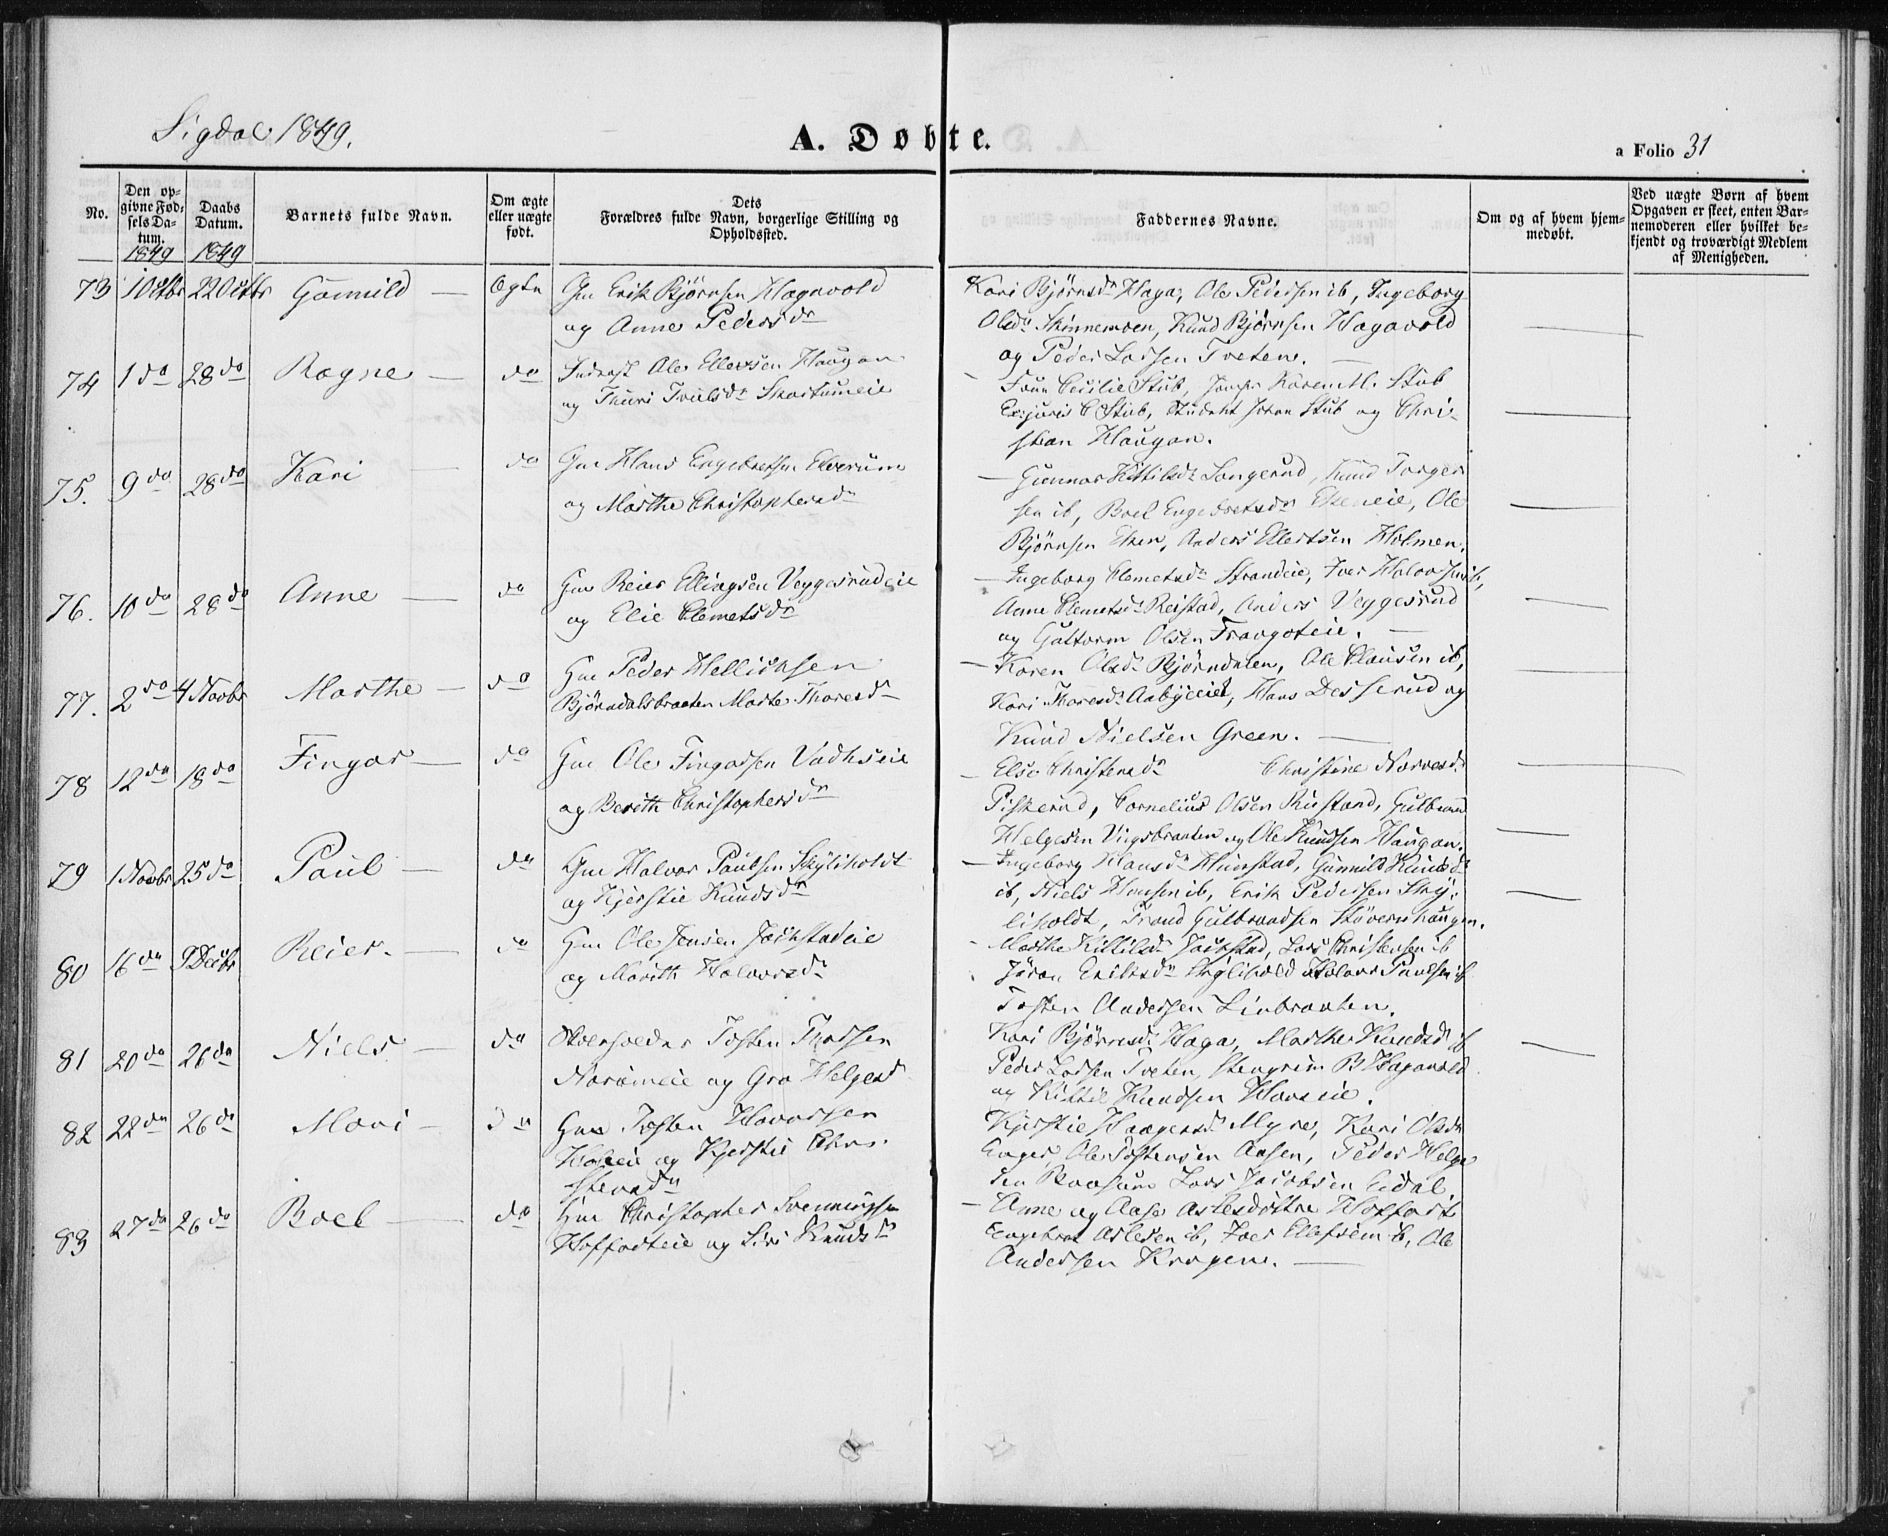 Sigdal 1849.
A. Døbte.
a Folio 31
No.
Den opgivne Fødselsdatum.
1849
Daabs Datum.
1849
Barnets fulde Navn.
Om ægte eller uægte født.
Dets Forældres fulde Navn, borgerlige Stilling og Opholdssted.
Faddernes Navne.
Om og af hvem hjemmedøbt.
Ved uægte Børn af hvem Opgaven er skeet, enten Barnemoderen eller hvilket bekjendt og troværdigt Medlem af Menigheden.
73 1 Octbr 22 Octbr Gunnild — Ægte Gm Erik Bjørnsen Hagavold
og Anne Pedersdr
Kari Bjørnsdr Haga, Ole Pedersen ib, Ingeborg
Olsdr Skinnemoen, Knud Bjørnsen Hagavold
og Peder Larsen Tveten. —
74 1 do 28 do Ragne — do Ole Ellevsen Haugan
og Thuri
Frue Cecilie Stub, Jomfr Karen M. Stub
Exjuris C Stub, Student Johan Stub og Chri-
stian Haugan.
75. 9 do 28 do Kari — do Gm Hans Engebretsen Elverum
og Marthe Christophersdr
Gunnor Kittilsdr Langerud, Knud Torger
sen ib, Boel Engebretsdr Ekeneie, Ole
Bjørnsen Eken, Anders Ellertsen Holmen.
76. 10 do 28 do Anne — do Gm Reier Ellingsen Veggesrudeie
og Elie Clemetsdr
— Ingeborg Clemetsdr Strandeie, Iver Halvorsen ib,
Anne Clemetsdr Reistad, Anders Veggesrud
og Guttorm Olsen Frovgoteie. —
77. 2 do 4 Novbr Marthe — do Gm Peder Helliksen
Bjørndalsbraaten Marte Thoresdr
— Karen Olsdr Bjørndalen, Ole Clausen ib,
Kari Thoresdr Aabyeeiet, Hans Desserud og
Knud Nielsen Green. —
78 12 do 18 do Fingar — do Gm Ole Fingarsen Vadhseie
og Berith Christophersdr
— Else Christensdr Christine Narvesdr
Piskerud, Cornelius Olsen Rustand, Gulbrand
Helgesen Viigsbraaten og Ole Knudsen Haugan.
79 1 Novbr 25 do Paul — do Gm Halvor Paulsen Skjliholdt
og Kjerstie Knudsdr
— Ingeborg Hansdr Hunstad, Gunnild Knudsdr
ib, Niels Hansen ib, Erik Pedersen Skj-
liholdt, Trond Gulbrandsen Støvernhaugen.
80 16 do 9 Decbr Reier. — do Gm Ole Jensen Jokstadeie
og Marith Halvorsdr
— Marthe Kittilsdr Jokstad, Lars Christensen ib
Jøran Eriksdr Skjlihold Halvor Paulsen ib
Tosten Andersen Linbraaten.
81 20 do 26 do Niels — do Tosten
og Gro Helgesd
Kari Bjørnsdr Haga, Marthe Knudsd ib
Peder Larsen Tveten, Stengrim B Hagavold
og Kittil Knudsen Hovseie.
82 22 do 26 do Mari — do Gm Tosten Havorsen
og Kjerstie Chri-
stensdr
Kjerstie Haagensdr Myre, Kari Olsdr
Enger, Ole Tostensen Aasen, Peder Helge
sen Braasum Lars Jacobsen Eidal.
83 27 do 26 do Boel — do Gm Christopher Svenningsen
Hoffarteie og Siri Knudsdr
— Anne og Aase Aslesdøttre Hoffart
Engebret Aslesen ib, Iver Ellefsen ib, Ole
Andersen Kragen. —